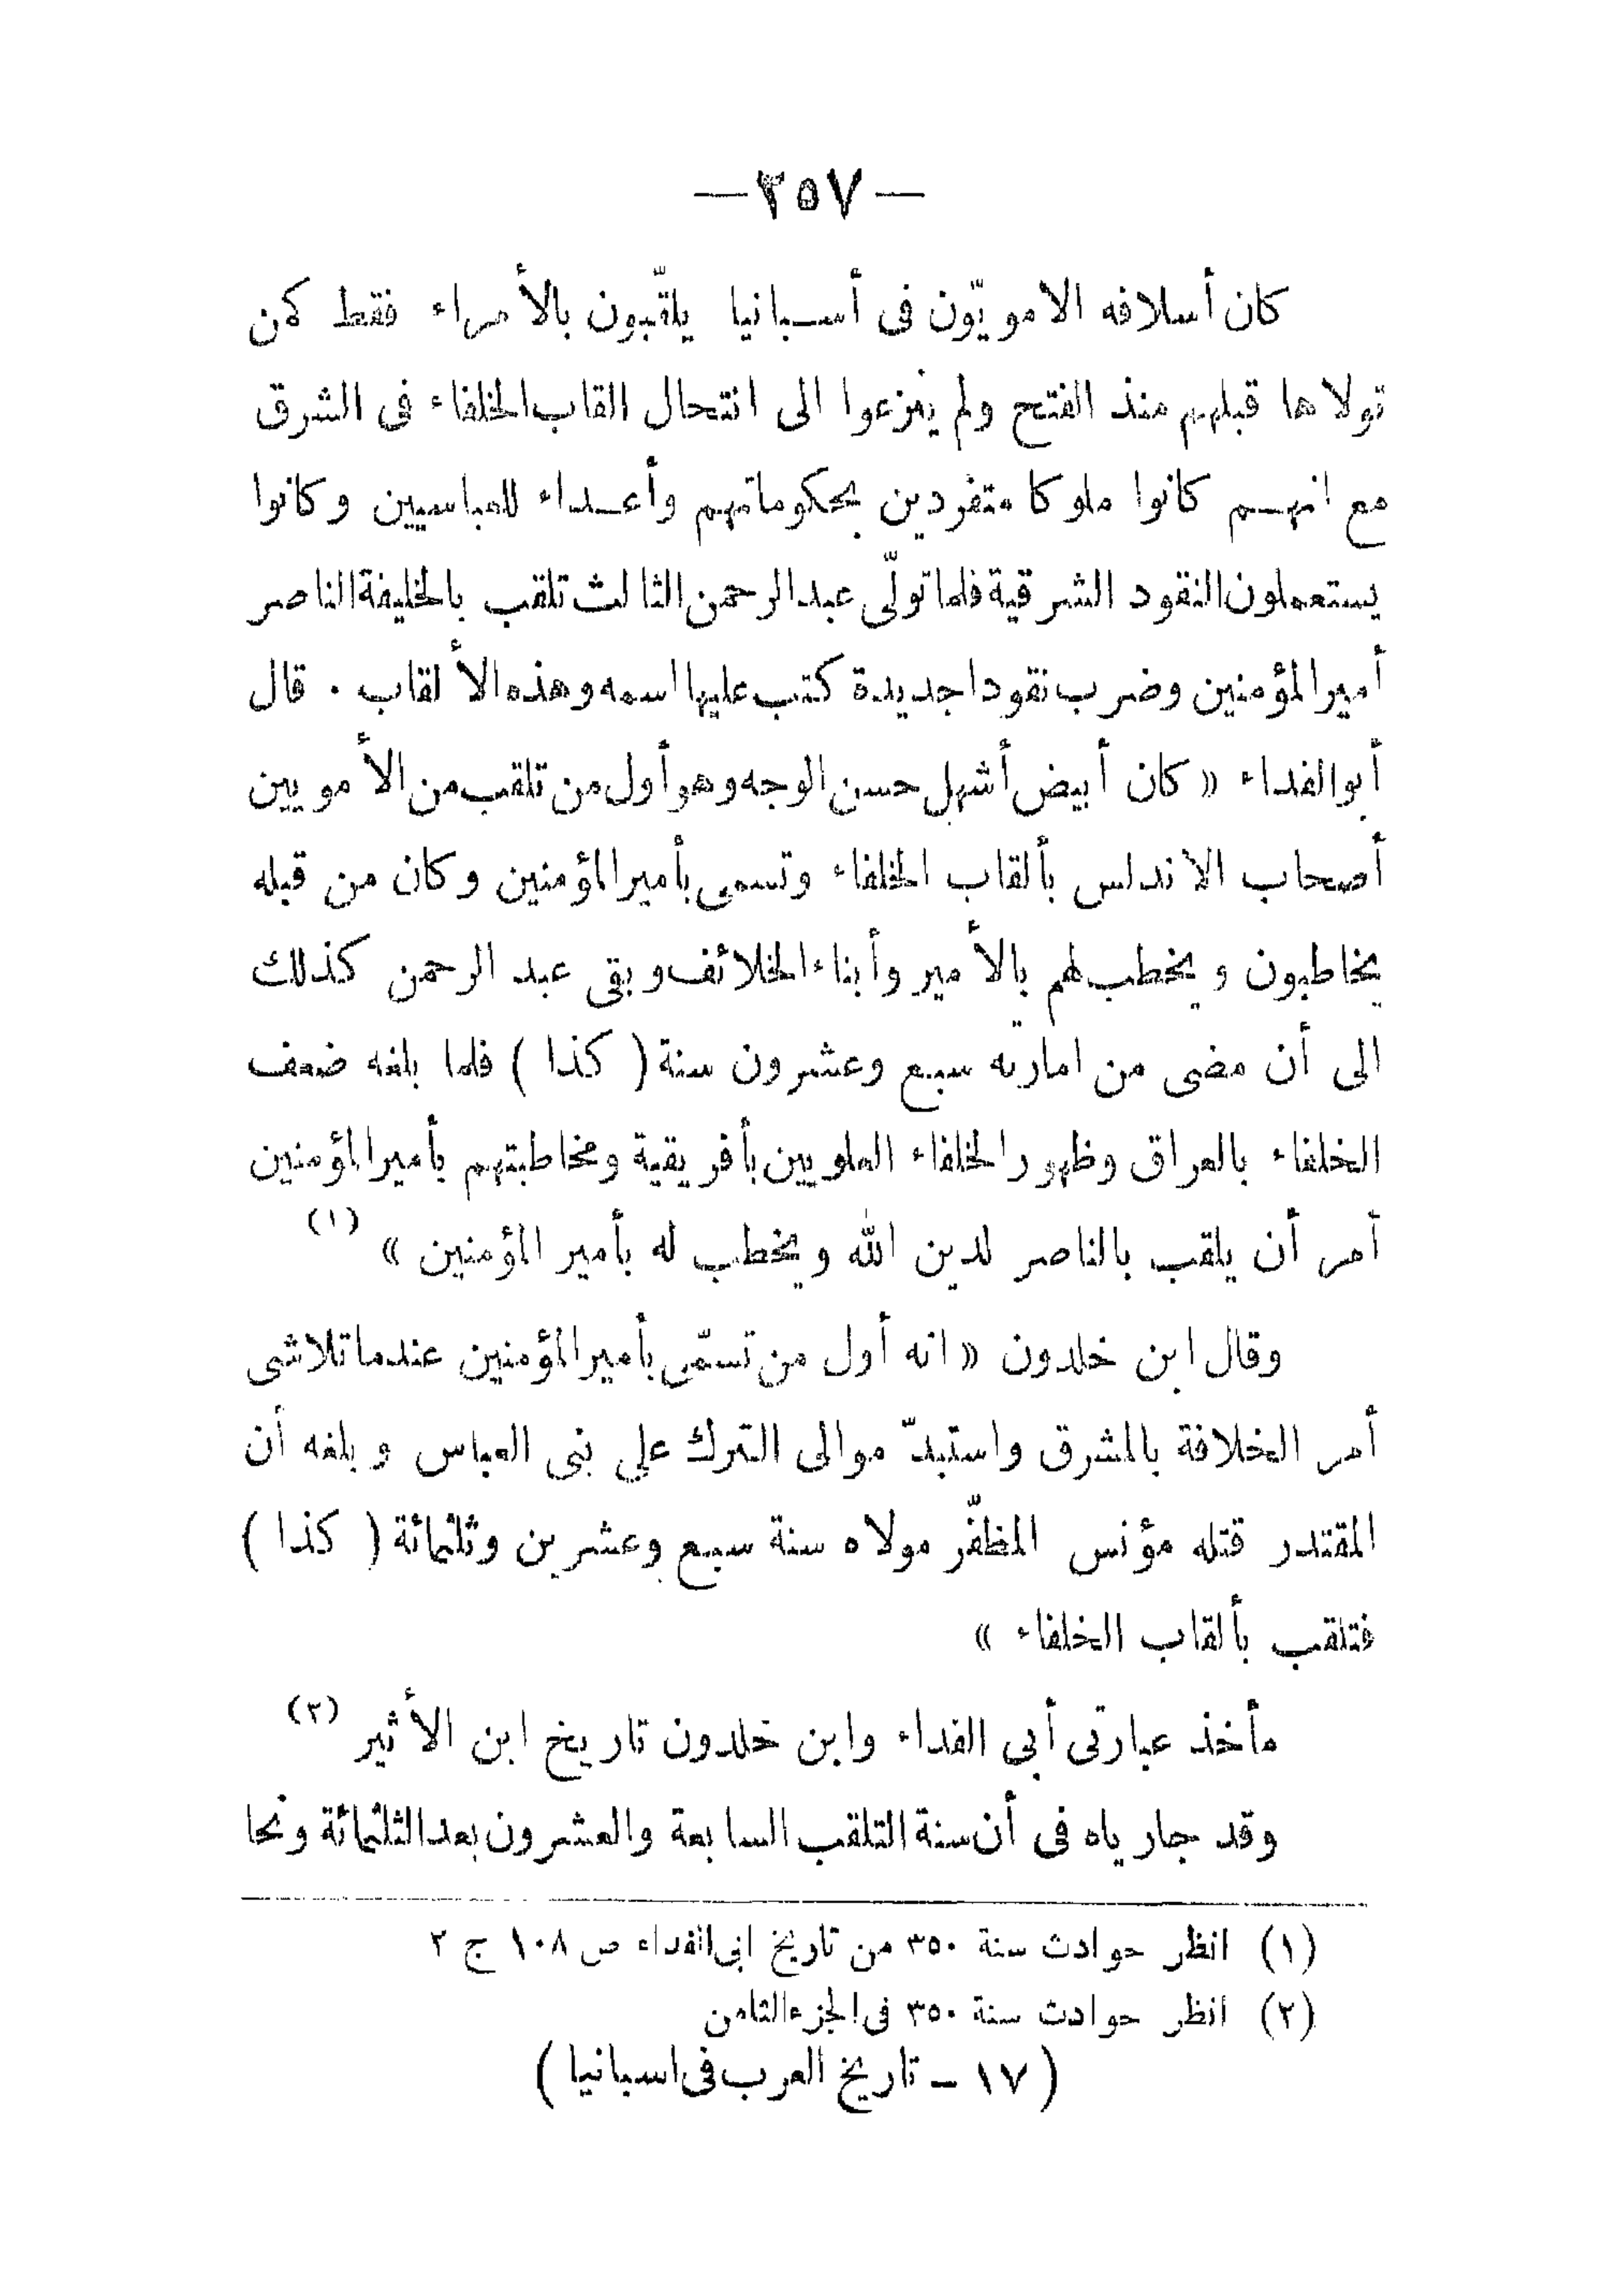 — ٢٥٧ —
كان أسلافه الامويّون فى أسبانيا يلقّبون بالأمراء فقط كمن
تولاها قبلهم منذ الفتح ولم ينزعوا الى انتحال القاب الخلفاء فى الشرق
مع انهم كانوا ملوكا متفردين بحكوماتهم وأعداء للعباسيين وكانوا
يستعملون النقود الشرقية فلما تولّى عبد الرحمن الثالث تلقب بالخليفة الناصر
أمير المؤمنين وضرب نقودا جديدة كتب عليها اسمه وهذه الألقاب . قال
أبو الفداء « كان أبيض أشهل حسن الوجه وهو أول من تلقب من الأمويين
أصحاب الاندلس بألقاب الخلفاء وتسمى بأمير المؤمنين وكان من قبله
يخاطبون ويخطب لهم بالأمير وأبناء الخلائف وبقى عبد الرحمن كذلك
الى أن مضى من امارته سبع وعشرون سنة ( كذا ) فلما بلغه ضعف
الخلفاء بالعراق وظهور الخلفاء العلويين بأفريقية ومخاطبتهم بأمير المؤمنين
أمر أن يلقب بالناصر لدين الله ويخطب له بأمير المؤمنين » (١)
وقال ابن خلدون « انه أول من تسمّى بأمير المؤمنين عندما تلاشى
أمر الخلافة بالمشرق واستبدّ موالى الترك على بنى العباس وبلغه أن
المقتدر قتله مؤنس المظفّر مولاه سنة سبع وعشرين وثلثمائة ( كذا )
فتلقب بألقاب الخلفاء »
مأخذ عبارتى أبى الفداء وابن خلدون تاريخ ابن الأثير (٢)
وقد جارياه فى أن سنة التلقب السابعة والعشرون بعد الثلثمائة ونحا
(١) انظر حوادث سنة ٣٥٠ من تاريخ ابى الفداء ص ١٠٨ ج ٢
(٢) انظر حوادث سنة ٣٥٠ فى الجزء الثامن
( ١٧ – تاريخ العرب فى اسبانيا )